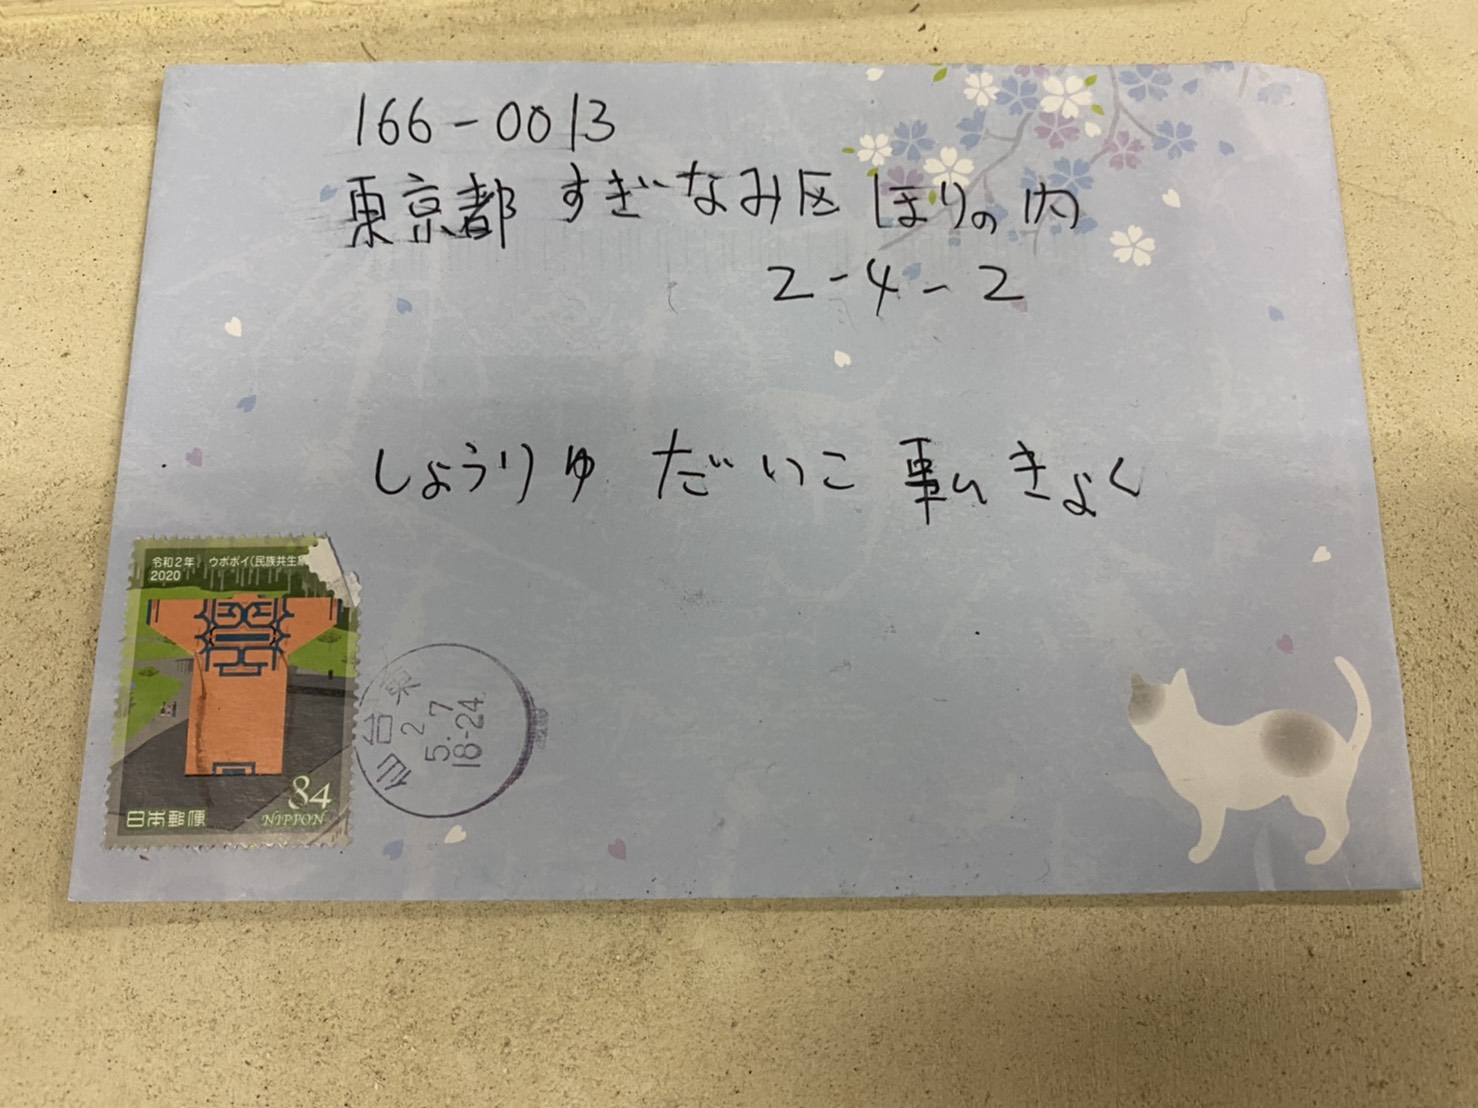 166-0013
東京都 すぎなみ区 ほりの内
2-4-2
しょうりゅ だいこ 転 きょく
令和2年 ウポポイ(民族共生
2020
84
日本郵便 NIPPON
仙台東
2
5.7
18-24